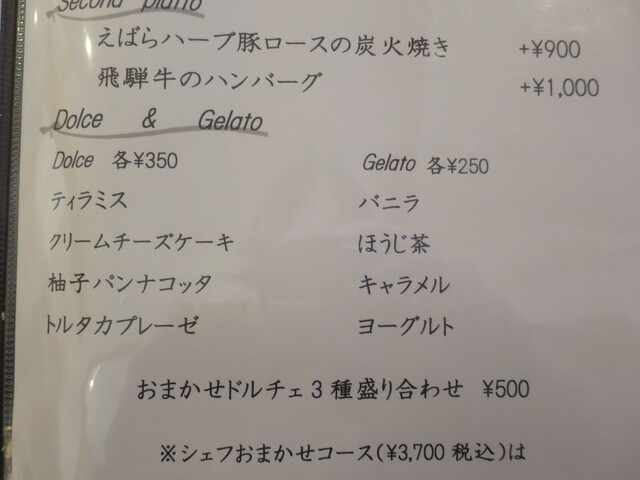 Second piatto
えばらハーブ豚ロースの炭火焼き +¥900
飛騨牛のハンバーグ +¥1,000
Dolce & Gelato
Dolce 各¥350 Gelato 各¥250
ティラミス バニラ
クリームチーズケーキ ほうじ茶
柚子パンナコッタ キャラメル
トルタカプレーゼ ヨーグルト
おまかせドルチェ3種盛り合わせ ¥500
※シェフおまかせコース(¥3,700税込)は